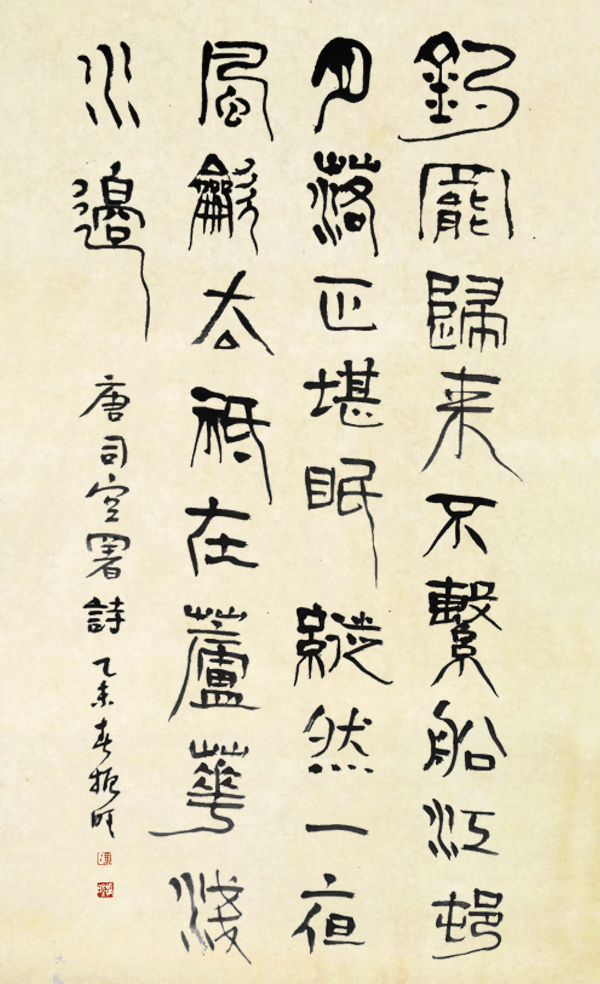 釣罷歸来不繫船江邨
月落正堪眠縱然一夜
風龡去祗在蘆華淺
水邊
唐司空署詩 乙未春振